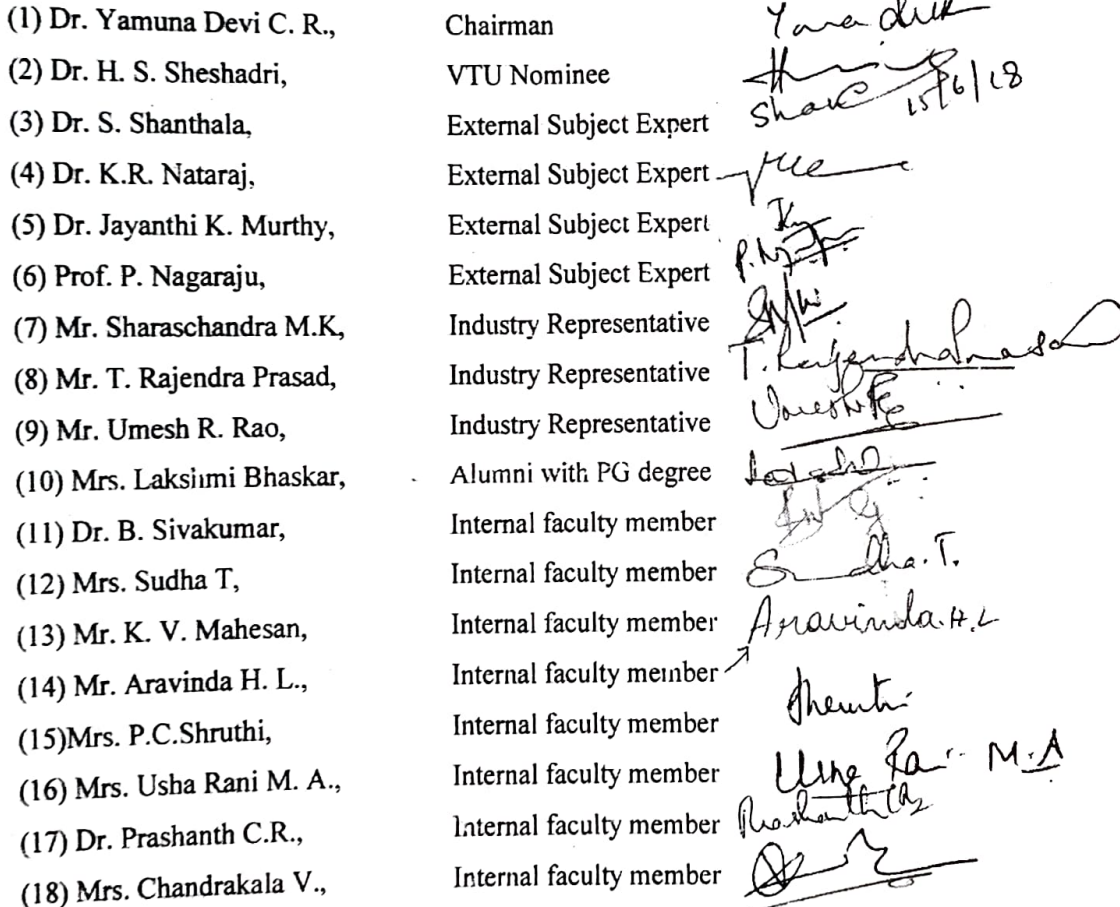 (1) Dr. Yamuna Devi C. R., Chairman
(2) Dr. H. S. Sheshadri, VTU Nominee
15/6/18
(3) Dr. S. Shanthala, External Subject Expert
(4) Dr. K.R. Nataraj, External Subject Expert
(5) Dr. Jayanthi K. Murthy, External Subject Expert
(6) Prof. P. Nagaraju, External Subject Expert
(7) Mr. Sharaschandra M.K, Industry Representative
(8) Mr. T. Rajendra Prasad, Industry Representative T. Rajendra Prasad
(9) Mr. Umesh R. Rao, Industry Representative
(10) Mrs. Lakshmi Bhaskar, Alumni with PG degree
(11) Dr. B. Sivakumar, Internal faculty member
(12) Mrs. Sudha T, Internal faculty member Sudha. T.
(13) Mr. K. V. Mahesan, Internal faculty member Aravinda. H. L
(14) Mr. Aravinda H. L., Internal faculty member
(15)Mrs. P.C.Shruthi, Internal faculty member
(16) Mrs. Usha Rani M. A., Internal faculty member Usha Rani M.A
(17) Dr. Prashanth C.R., Internal faculty member Prashanth CR
(18) Mrs. Chandrakala V., Internal faculty member